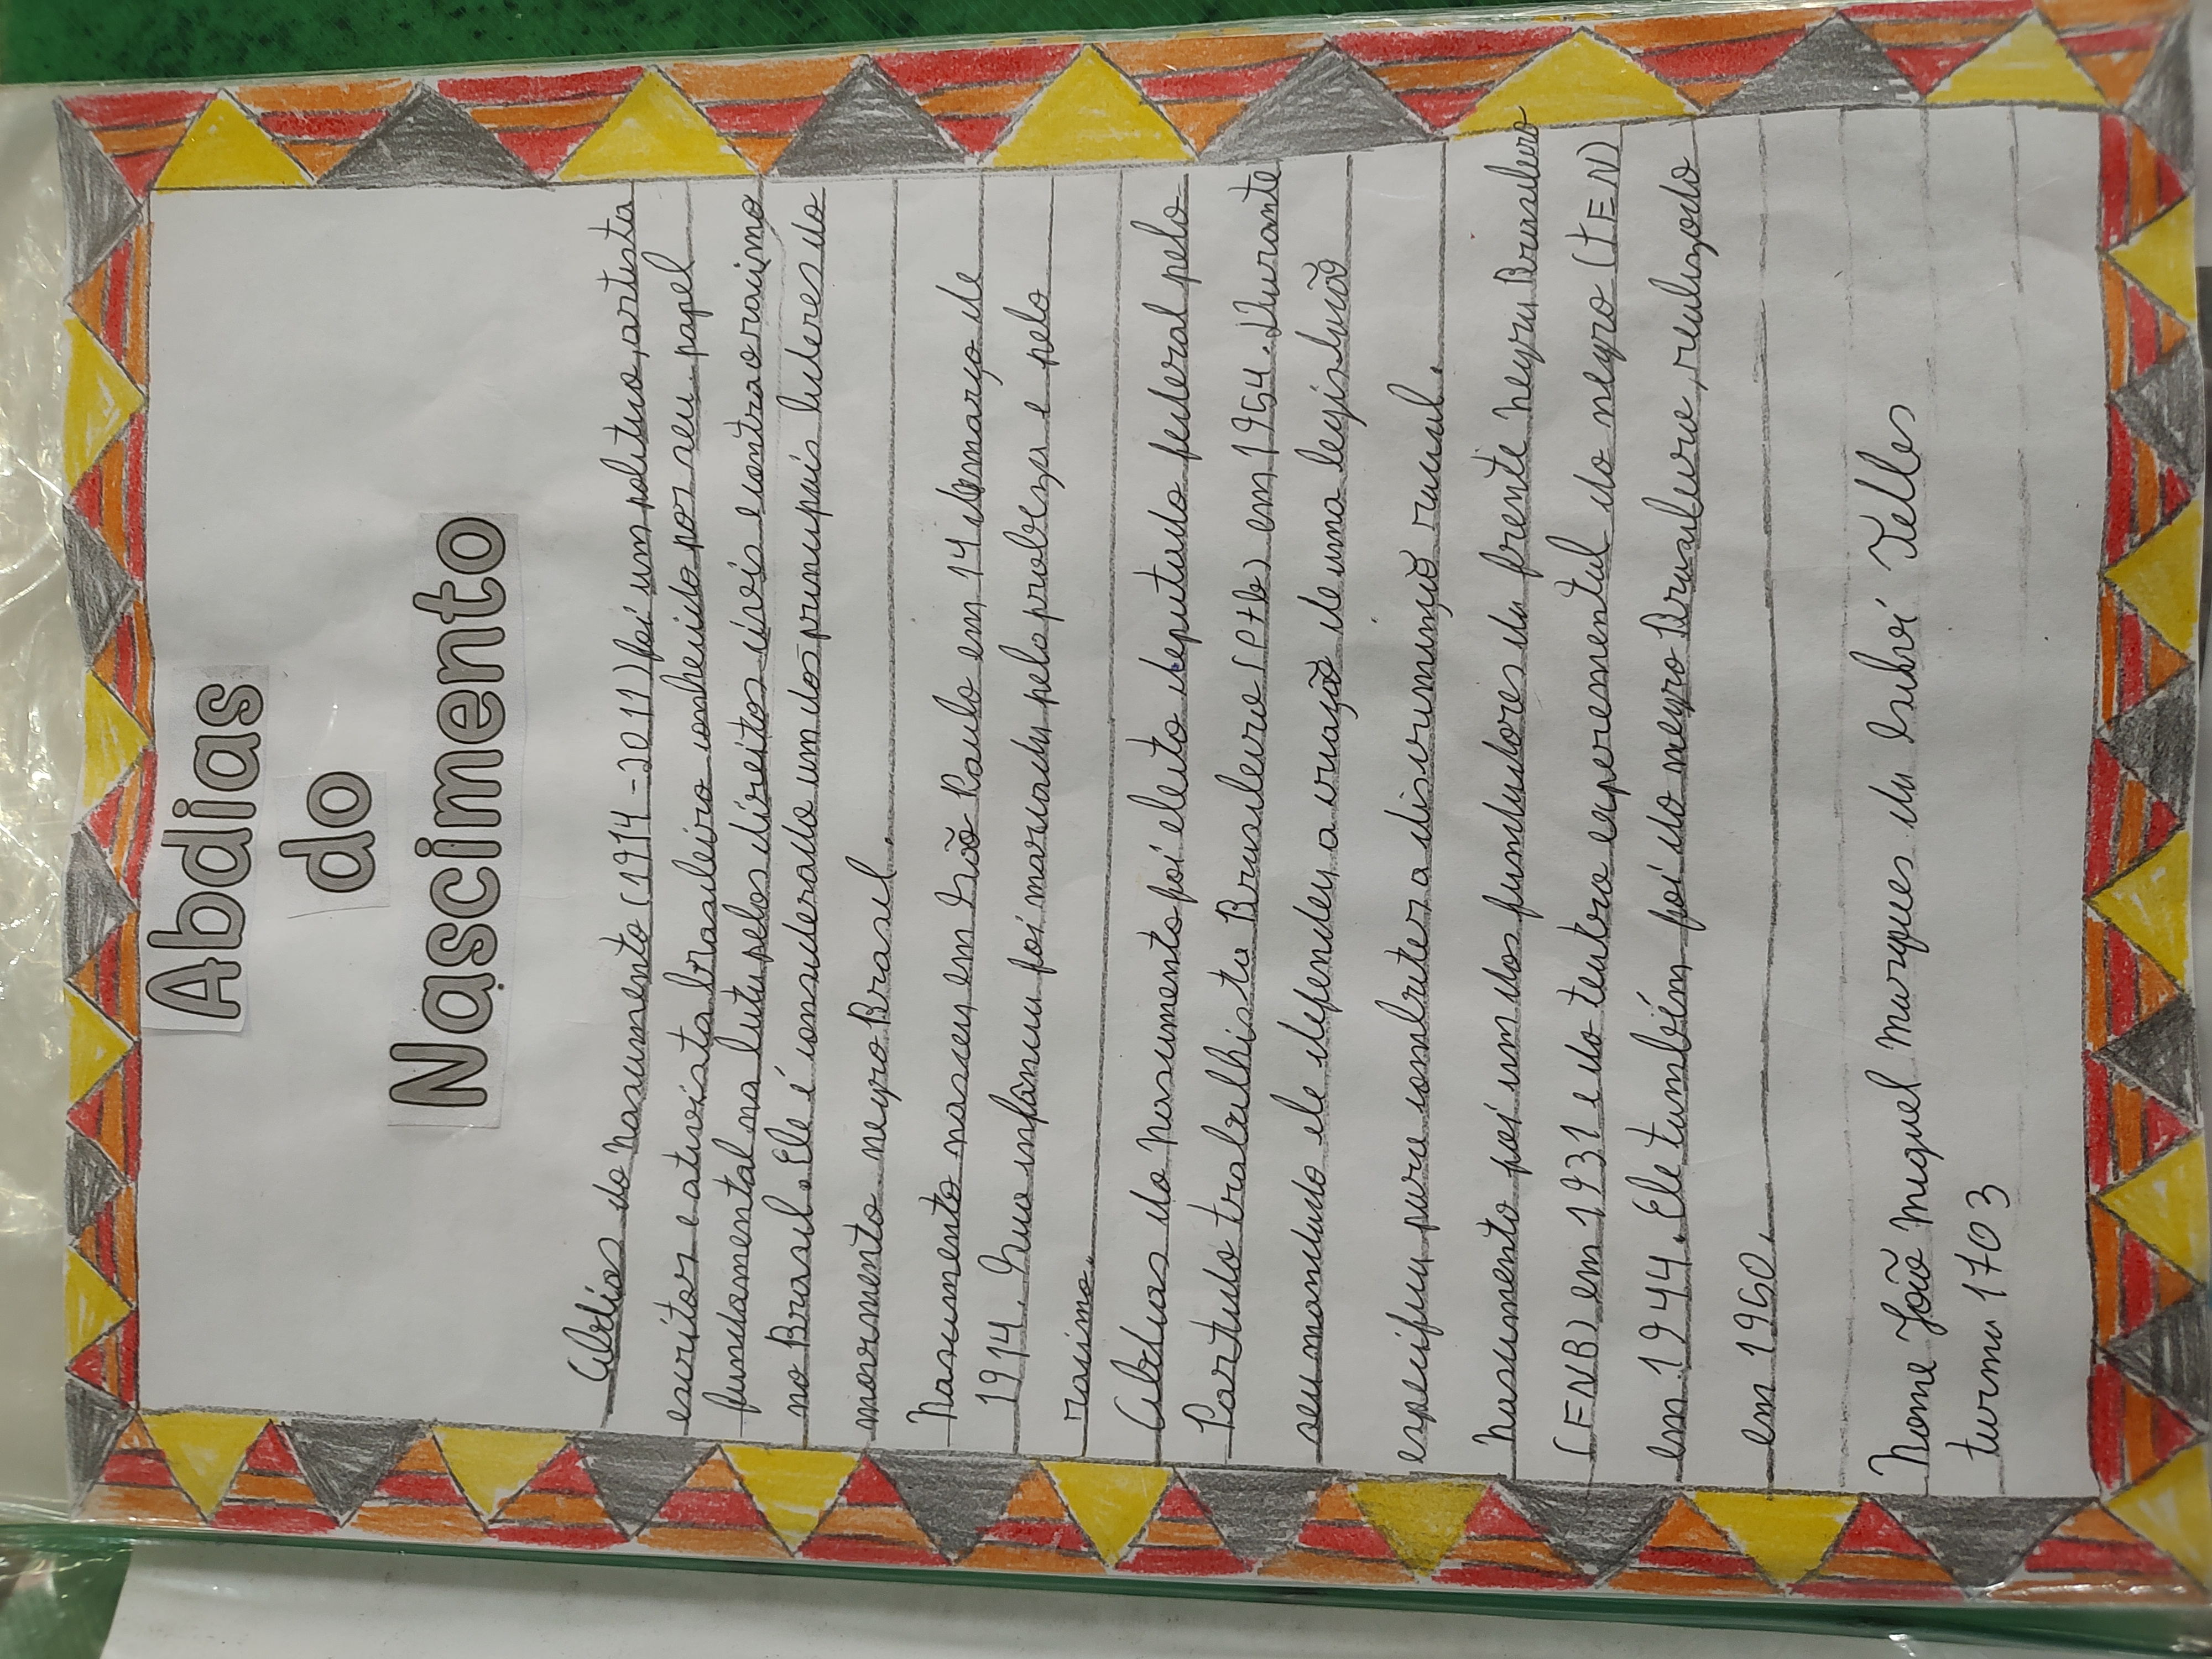 Abdias
do
Nascimento
Abdias do Nascimento (1914-2011) foi um politico, artista
escritor e ativista brasileiro conhecido por seu papel
fundamental na luta pelos direitos civis e contra o racimo
no Brasil. Ele é considerado um dos principais lideres do
movimento negro Brasil.
Nascimento nasceu em São Paulo em 14 de março de
1914. Sua infância foi marcada pela probleza e pelo
racimo.
Abdias do Nascimento foi eleito deputado federal pelo
Partido trabalhista Brasileiro (Ptb) em 1964. Durante
seu mandado ele defendeu a criação de uma legislação
especifica para combater a discriminação racial.
Nascimento foi um dos fundadores da frente negra Brasileiro
(FNB) em 1931 e do teatro experimental do negro (TEN)
em 1944. Ele também foi do negro Brasileiro, realizado
em 1950.
Nome João Miguel Marques da Telles
turma 1703